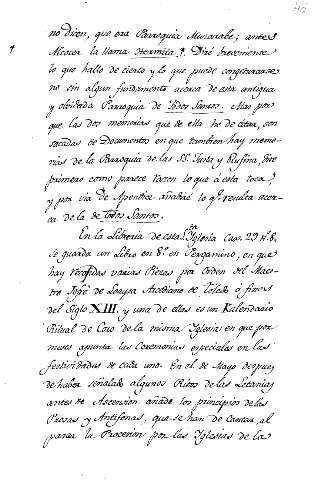 40
no dicen, que era Parroquia Muzarabe; antes
Alcocer la llama Hermita? Diré brevemente
lo que hallo de cierto y lo que puede congeturarse
no sin algun fundamento acerca de esta antigua
y olvidada Parroquia de Todos Santos. Mas por
que las dos memorias que de ella he de citar, son
sacadas de Documentos en que tambien hay memo-
rias de la Parroquia de las SS. Justa y Rufina, dire
primero como parece razon lo que á esta toca;
y por via de Apendice añadiré lo q.e resulta acer-
ca de la de Todos Santos.
En la Libreria de esta S.ta Yglesia Cax. 29 n.º 8,
se guarda un Libro en 8.º en Pergamino, en que
hay recogidas varias Piezas por orden del Maes-
tro Jofré de Loaysa Arcediano de Toledo á fines
del Siglo XIII. y una de ellas es un Kalendario
Ritual de Coro de la misma Yglesia en que por
meses apunta las Ceremonias especiales en las
festividades de cada uno. En el de Mayo despues
de haber señalado algunos Ritos de las Letanias
antes de Ascension añade los principios de las
Prosas y Antifonas, que se han de cantar al
pasar la Procesion por las Yglesias de la